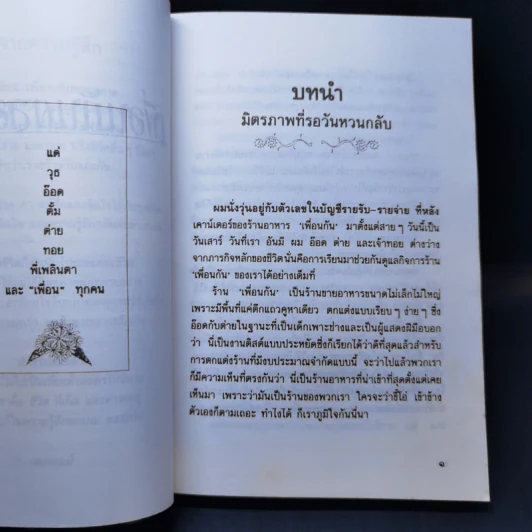 แด่
วุธ
อ๊อด
ตั้ม
ต่าย
ทอย
พี่เพลินตา
และ "เพื่อน" ทุกคน
บทนำ
มิตรภาพที่รอวันหวนกลับ
ผมนั่งวุ่นอยู่กับตัวเลขในบัญชีรายรับ-รายจ่าย ที่หลัง
เคาน์เตอร์ของร้านอาหาร 'เพื่อนกัน' มาตั้งแต่สาย ๆ วันนี้เป็น
วันเสาร์ วันที่เรา อันมี ผม อ๊อด ต่าย และเจ้าทอย ต่างว่าง
จากภารกิจหลักของชีวิตนั่นคือการเรียนมาช่วยกันดูแลกิจการร้าน
'เพื่อนกัน' ของเราได้อย่างเต็มที่
ร้าน 'เพื่อนกัน' เป็นร้านขายอาหารขนาดไม่เล็กไม่ใหญ่
เพราะมีพื้นที่แค่ตึกแถวคูหาเดียว ตกแต่งแบบเรียบ ๆ ง่าย ๆ ซึ่ง
อ๊อดกับต่ายในฐานะที่เป็นเด็กเพาะช่างและเป็นผู้แสดงฝีมือบอก
ว่า นี่เป็นงานติสต์แบบประหยัดซึ่งก็เรียกได้ว่าดีที่สุดแล้วสำหรับ
การตกแต่งร้านที่มีงบประมาณจำกัดแบบนี้ จะว่าไปแล้วพวกเรา
ก็มีความเห็นที่ตรงกันว่า นี่เป็นร้านอาหารที่น่าเข้าที่สุดตั้งแต่เคย
เห็นมา เพราะว่ามันเป็นร้านของพวกเรา ใครจะว่าขี้โอ่ เข้าข้าง
ตัวเองก็ตามเถอะ ทำไงได้ ก็เราภูมิใจกันนี่นา
๑